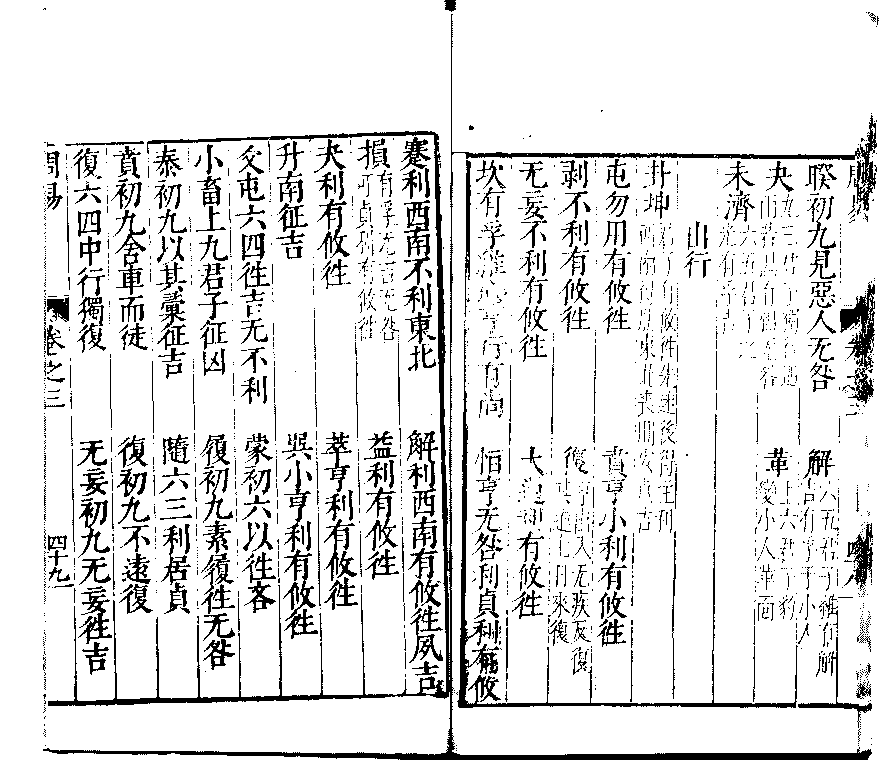 睽初九見惡人无咎 解六五君子維有解吉有孚于小人
夬九三君子夬夬獨行遇雨若濡有慍无咎 革上六君子豹變小人革面
未濟六五君子之光有孚吉
出行
卦坤君子有攸徃先迷後得主利西南得朋東北喪朋安貞吉
屯勿用有攸徃 賁亨小利有攸徃
剥不利有攸徃 復亨出入无疾反復其道七日來復
无妄不利有攸徃 大過利有攸徃
坎有孚維心亨行有尚 恒亨无咎利貞利有攸
蹇利西南不利東北 解利西南有攸徃夙吉
損有孚元吉无咎可貞利有攸徃 益利有攸徃
夬利有攸徃 萃亨利有攸徃
升南征吉 巽小亨利有攸徃
爻屯六四徃吉无不利 蒙初六以徃吝
小畜上九君子征凶 履初九素履徃无咎
泰初九以其彙征吉 隨六三利居貞
賁初九舍車而徒 復初九不遠復
復六四中行獨復 无妄初九无妄徃吉
周易 卷之三 四十九